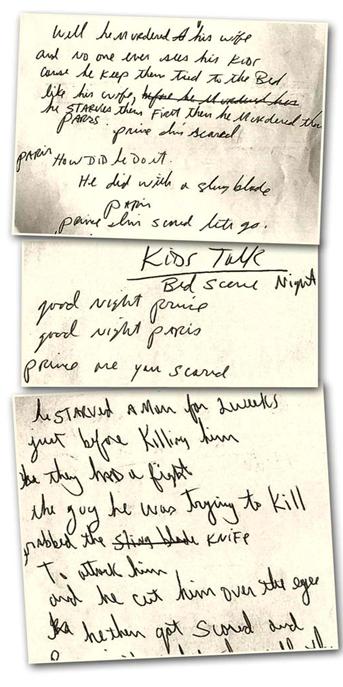 Well he Murdered his wife
and no one ever sees his KiDr
cause he keep them tied to the Bed
like his wife, before he Murdered his
he STARVES them First then he Murdered the
PARIS
prince I'm scared
PARIS HOW DID he Do it.
He did with a sling blade
PARIS
prince I'm scared lets go.
KiDr Talk
Bed Scene Night
good Night prince
good Night PARIS
prince are you scared
he STARVED A MAN for 2 weeks
just before Killing him
they had a fight
the guy he was trying to kill
grabbed the sling blade KNiFe
To attack him
and he cut him over the eye
he then got scared and